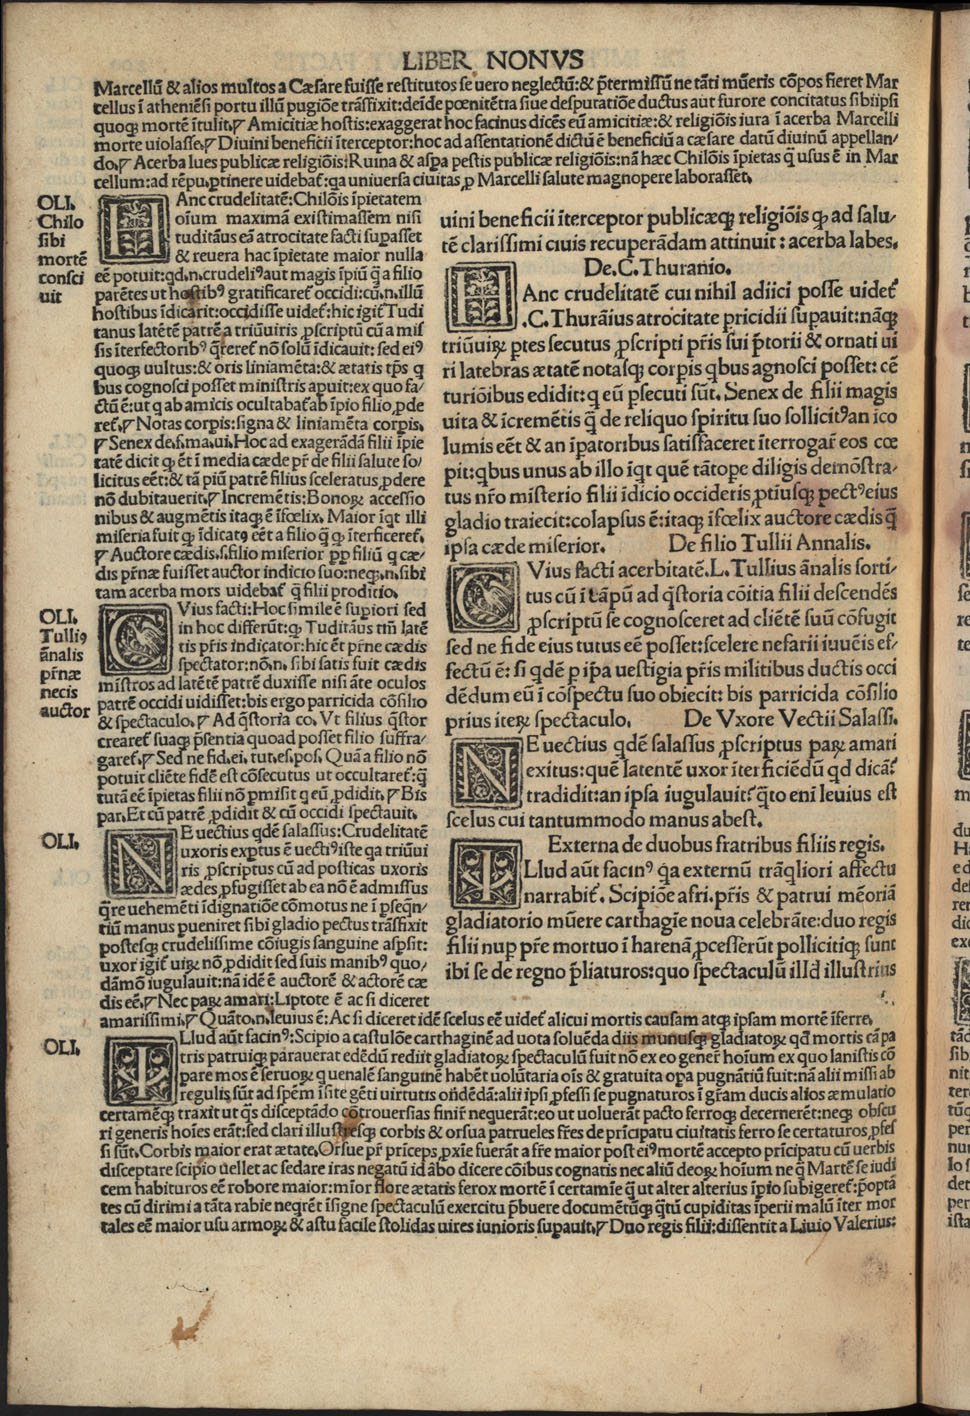 LIBER NONVS
Marcellū & alios multos a Cæsare fuisse restitutos se uero neglectū: & p̄termissū ne tāti mūeris cōpos fieret Mar
cellus ī atheniēsi portu illū pugiōe trāsfixit: deīde pœnitētia siue desputatiōe ductus aut furore concitatus sibiipsi
quoqꝫ mortē ītulit. Amicitiæ hostis: exaggerat hoc facinus dicēs eū amicitiæ: & religiōis iura ī acerba Marcelli
morte uiolasse. Diuini beneficii īterceptor: hoc ad assentationē dictū ē beneficiū a cæsare datū diuinū appellan/
do. Acerba lues publicæ religiōis: Ruina & aspa pestis publicæ religiōis: nā hæc Chilōis īpietas q̄ usus ē in Mar
cellum: ad rēpu. ptinere uidebat̄: qa uniuersa ciuitas ꝓ Marcelli salute magnopere laborasset.
OLI.
Chilo
sibi
mortē
consci
uit
HAnc crudelitatē: Chilōis īpietatem
oīum maximā existimassem nisi
tuditāus eā atrocitate facti supasset
& reuera hac īpietate maior nulla
eē potuit: qd. n. crudeliꝰ aut magis īpiū q̄ a filio
parētes ut hostibꝰ gratificaret̄ occidi: cū. n. illū
hostibus īdicarit: occidisse uidet̄: hic igit̄ Tudi
tanus latētē patrē a triūuiris ꝓscriptū cū a mis
sis īterfectoribꝰ q̄reret̄ nō solū īdicauit: sed eiꝰ
quoqꝫ uultus: & oris liniamēta: & ætatis tp̄s q
bus cognosci posset ministris apuit: ex quo fa/
ctū ē: ut q ab amicis ocultabat̄ ab īpio filio ꝓde
ret̄. Notas corpis: signa & liniamēta corpis.
Senex de. f. ma. ui. Hoc ad exagerādā filii īpie
tatē dicit ꝙ ēt ī media cæde pr̄ de filii salute so/
licitus eēt: & tā piū patrē filius sceleratus ꝓdere
nō dubitauerit. Incremētis: Bonoꝝ accessio
nibus & augmētis itaqꝫ ē īfœlix. Maior īqt illi
miseria fuit ꝙ īdicatꝰ eēt a filio q̄ ꝙ īterficeret̄.
Auctore cædis. s. filio miserior ꝓp filiū q cæ/
dis pr̄næ fuisset auctor indicio suo: neqꝫ. n. sibi
tam acerba mors uidebat̄ q̄ filii proditio.
uini beneficii īterceptor publicæqꝫ religiōis ꝙ ad salu/
tē clarissimi ciuis recuperādam attinuit: acerba labes.
De. C. Thuranio.
HAnc crudelitatē cui nihil adiici posse uidet̄
.C. Thurāius atrocitate pricidii supauit: nāqꝫ
triūuiꝝ ptes secutus ꝓscripti pr̄is sui p̄torii & ornati ui
ri latebras ætatē notasqꝫ corpis qbus agnosci posset: cē
turiōibus edidit: q eū ꝓsecuti sūt. Senex de filii magis
uita & īcremētis q̄ de reliquo spiritu suo sollicitꝰ an ico
lumis eēt & an īpatoribus satisfaceret īterrogar̄ eos cœ
pit: qbus unus ab illo īqt quē tātope diligis demōstra/
tus nr̄o misterio filii īdicio occideris ꝓtiusqꝫ pectꝰ eius
gladio traiecit: colapsus ē: itaqꝫ īfœlix auctore cædis q̄
ipsa cæde miserior. De filio Tullii Annalis.
OLI.
Tulliꝰ
ānalis
pr̄næ
necis
auctor
CVius facti: Hoc simile ē supiori sed
in hoc differūt: ꝙ Tuditāus tm̄ latē
tis pr̄is indicator: hic ēt pr̄ne cædis
spectator: nō. n. sibi satis fuit cædis
mistros ad latētē patrē duxisse nisi āte oculos
patrē occidi uidisset: bis ergo parricida cōsilio
& spectaculo. Ad q̄storia co. Vt filius q̄stor
crearet̄ suaqꝫ p̄sentia quoad posset filio suffra/
garet̄. Sed ne fid. ei. tut. es. pos. Quā a filio nō
potuit cliēte fidē est cōsecutus ut occultaret̄: q̄
tutā eē īpietas filii nō ꝑmisit q eū ꝓdidit. Bis
par. Et cū patrē ꝓdidit & cū occidi spectauit.
CVius facti acerbitatē. L. Tullius ānalis sorti/
tus cū ī cāpū ad q̄storia cōitia filii descendēs
ꝓscriptū se cognosceret ad cliētē suū cōfugit
sed ne fide eius tutus eē posset: scelere nefarii iuuēis ef/
fectū ē: si qdē p ipsa uestigia pr̄is militibus ductis occi
dēdum eū ī cōspectu suo obiecit: bis parricida cōsilio
prius iteꝝ spectaculo. De Vxore Vectii Salassi.
OLI.
NE uectius qdē salassus: Crudelitatē
uxoris exptus ē uectiꝰ iste qa triūui
ris ꝓscriptus cū ad posticas uxoris
ædes ꝓfugisset ab ea nō ē admissus
q̄re uehemēti īdignatiōe cōmotus ne ī ꝓseqn̄/
tiū manus pueniret sibi gladio pectus trāsfixit
posteſqꝫ crudelissime cōiugis sanguine aspsit:
uxor igit̄ uiꝝ nō ꝓdidit sed suis manibꝰ quo/
dāmō iugulauit: nā idē ē auctorē & actorē cæ
dis eē. Nec paꝝ amari: Liptote ē ac si diceret
NE uectius qdē salassus ꝓscriptus paꝝ amari
exitus: quē latentē uxor īterficiēdū qd dicā?
tradidit: an ipsa iugulauit? q̄to eni leuius est
scelus cui tantummodo manus abest.
Externa de duobus fratribus filiis regis.
ILlud aūt facinꝰ q̄a externū trāqliori affectu
narrabit̄. Scipiōe afri. pr̄is & patrui mēoriā
gladiatorio mūere carthagīe noua celebrāte: duo regis
filii nup pr̄e mortuo ī harenā ꝓcesserūt pollicitiqꝫ sunt
ibi se de regno p̄liaturos: quo spectaculū illd illustrius
amarissimi. Quāto. n. leuius ē: Ac si diceret idē scelus eē uidet̄ alicui mortis causam atqꝫ ipsam mortē īferre.
OLI.
ILlud aūt facinꝰ: Scipio a castulōe carthaginē ad uota soluēda diis munusqꝫ gladiatoꝝ qd mortis cā pa
tris patruiqꝫ parauerat edēdū rediit gladiatoꝝ spectaculū fuit nō ex eo gener̄ hoīum ex quo lanistis cō
pare mos ē seruoꝝ q uenalē sanguinē habēt uolūtaria oīs & gratuita opa pugnātiū fuit: nā alii missi ab
regulis sūt ad spēm īsite gēti uirtutis ondēdā: alii ipsi ꝓfessi se pugnaturos ī gr̄am ducis alios æmulatio
certamēqꝫ traxit ut q̄s disceptādo cōtrouersias finir̄ nequerāt: eo ut uoluerāt pacto ferroqꝫ decernerēt: neqꝫ obscu
ri generis hoīes erāt: sed clari illustresqꝫ corbis & orsua patrueles fr̄es de prīcipatu ciuitatis ferro se certaturos ꝓfes
si sūt. Corbis maior erat ætate. Orsuę pr̄ prīceps ꝓxīe fuerāt a fr̄e maior post eiꝰ mortē accepto prīcipatu cū uerbis
disceptare scipio uellet ac sedare iras negatū id ābo dicere cōibus cognatis nec aliū deoꝝ hoīum ne q̄ Martē se iudi
cem habituros eē robore maior: mīor flore ætatis ferox mortē ī certamīe q̄ ut alter alterius īpio subigeret̄: p̄opta
tes cū dirimi a tāta rabie neqrēt īsigne spectaculū exercitu p̄buere documētūqꝫ q̄tū cupiditas īperii malū īter mor
tales eē maior usu armoꝝ & astu facile stolidas uires iunioris supauit. Duo regis filii: dissentit a Liuio Valerius: